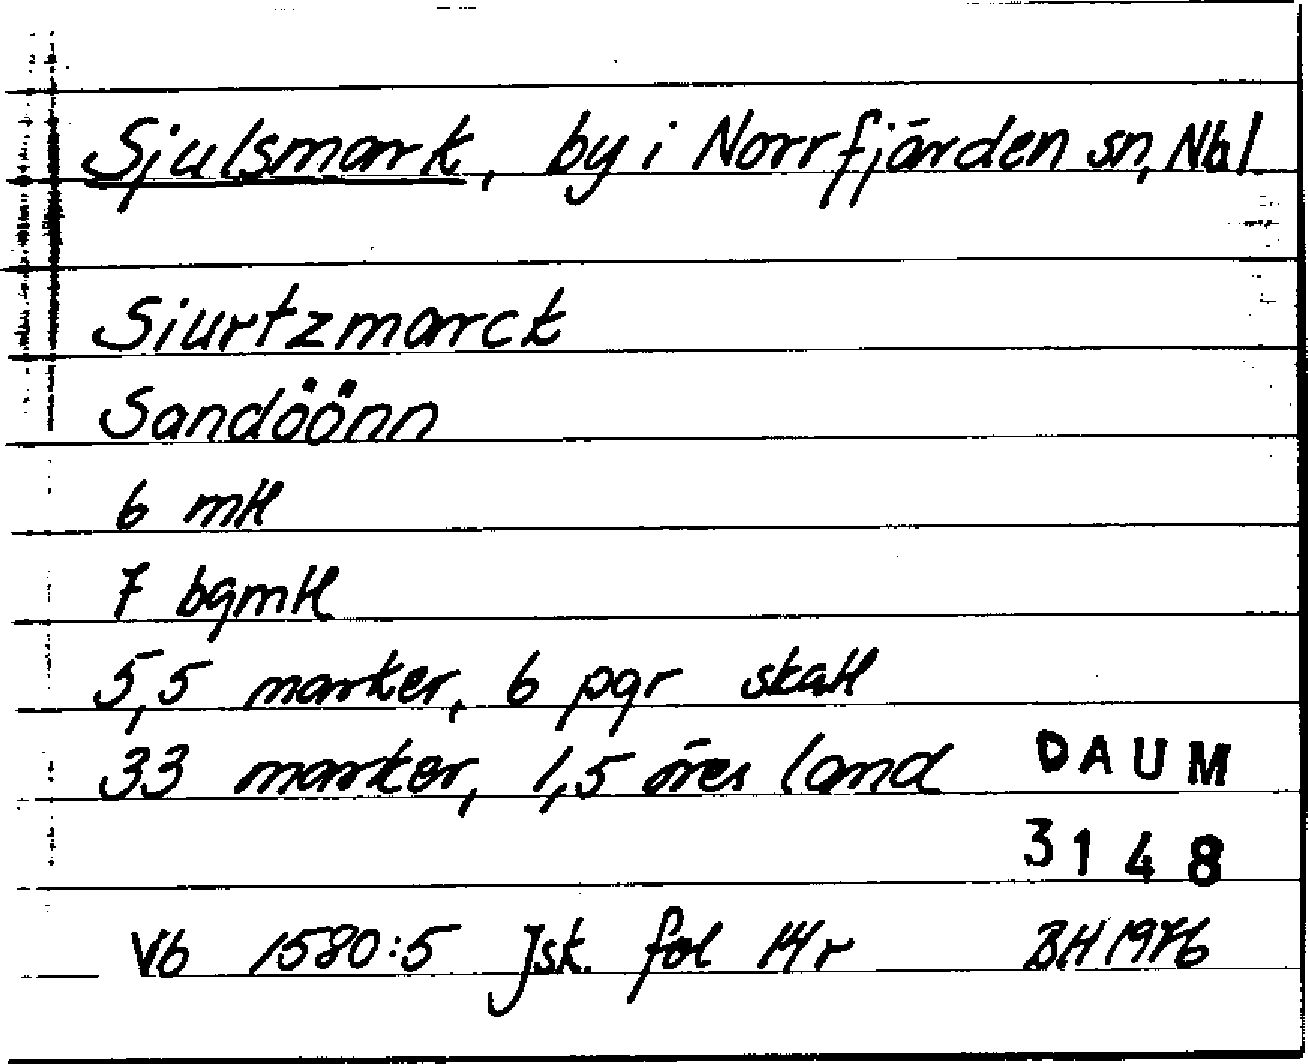 Sjulsmark, by i Norrfjärden sn, Nbl.
Siurtzmarck
Sandöönn
6 mtl
7 bgmtl
5,5 marker, 6 pgr skatt
33 marker, 1,5 öres land
DAUM
3148
Vb 1580:5 Jsk. fol 14r BH 1976